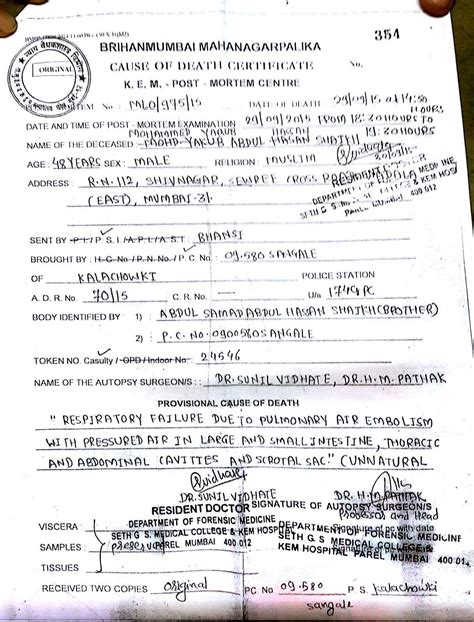 354
BRIHANMUMBAI MAHANAGARPALIKA
CAUSE OF DEATH CERTIFICATE No.
K. E. M. - POST - MORTEM CENTRE
ORIGINAL
No. 975/15 DATE OF DEATH 29/09/15 at
HOURS
DATE AND TIME OF POST - MORTEM EXAMINATION 29/09/2015 FROM 18:30 HOURS TO
19:30 HOURS
MOHAMMED YAKUB HASSAN
NAME OF THE DECEASED MOHD-YAKUB ABDUL HASSAN SHAIKH
AGE: 48 YEARS SEX: MALE RELIGION: MUSLIM
ADDRESS: R.N. 112, SHIVNAGAR, SEWREE CROSS
(EAST), MUMBAI-31.
DEPARTMENT OF
SETH G S MEDICAL COLLEGE & KEM HOSP
PAREL MUMBAI 400 012
SENT BY P I / P S I / A P I / A S I BHANSI
BROUGHT BY: H C No / P N. No. / P C No: 09-580 SANGALE
OF KALACHOWKI POLICE STATION
A. D. R. No. 70/15 C. R. No. U/s 174 CRPC
BODY IDENTIFIED BY 1) : ABDUL SAMAD ABDUL HASSAN SHAIKH (BROTHER)
2) : P.C. NO. 0900580 SANGALE
TOKEN NO. Casulty / OPD / Indoor No: 24546
NAME OF THE AUTOPSY SURGEON/S : DR. SUNIL VIDHATE, DR. H. M. PATHAK
PROVISIONAL CAUSE OF DEATH
" RESPIRATORY FAILURE DUE TO PULMONARY AIR EMBOLISM
WITH PRESSURED AIR IN LARGE AND SMALL INTESTINE, THORACIC
AND ABDOMINAL CAVITIES AND SCROTAL SAC." (UNNATURAL
DR. SUNIL VIDHATE DR. H. M. PATHAK
RESIDENT DOCTOR SIGNATURE OF AUTOPSY SURGEON/S
Professor and Head
VISCERA : DEPARTMENT OF FORENSIC MEDICINE DEPARTMENT OF FORENSIC MEDICINE
Signature of pc with date
SAMPLES : preserved
SETH G S MEDICAL COLLEGE & KEM HOSPITAL SETH G S MEDICAL COLLEGE &
PAREL MUMBAI 400 012 KEM HOSPITAL, PAREL MUMBAI 400 012
TISSUES
RECEIVED TWO COPIES Original PC No 09-580 P S. Kalachowki
sangale